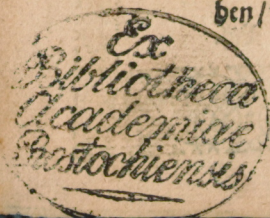 ben/
Ex
Bibliotheca
Academiae
Rostochiensis